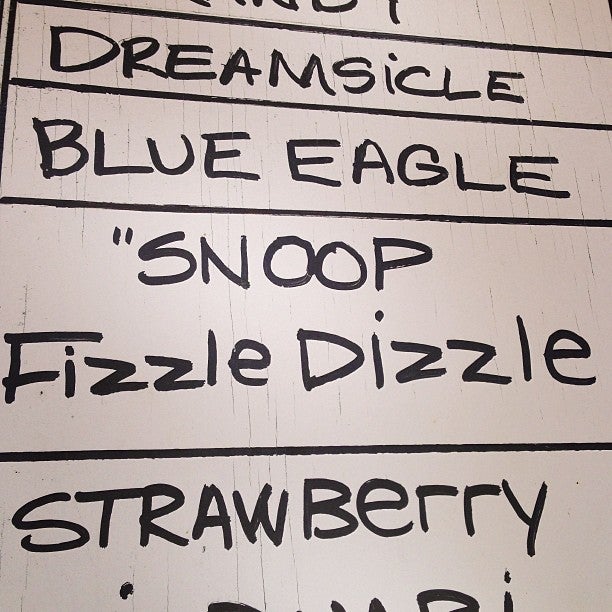 DREAMSiCLE
BLUE EAGLE
"SNOOP
Fizzle Dizzle
STRAWBerry